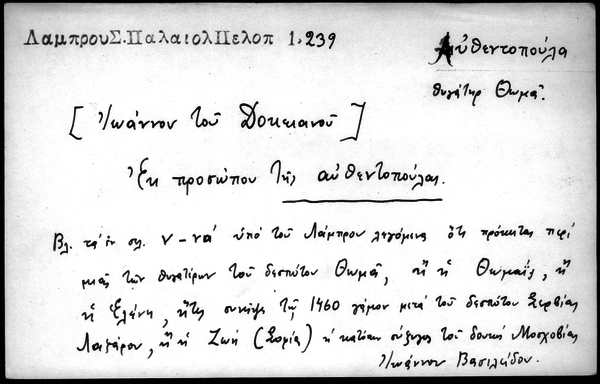 ΛαμπρουΣ.ΠαλαιολΠελοπ 1,239
Αὐθεντοπούλα
θυγάτηρ Θωμᾶ.
[Ἰωάννου τοῦ Δοκειανοῦ]
Ἐκ προσώπου τῆς αὐθεντοπούλας.
Βλ. τὰ ἐν σελ. ν-να´ ὑπὸ τοῦ Λάμπρου λεγόμενα ὅτι πρόκειται περὶ
μιᾶς τῶν θυγατέρων τοῦ δεσπότου Θωμᾶ, ἢ ἡ Θωμαΐς, ἢ
ἡ Ἑλένη, ἥτις συνῆψε τῷ 1460 γάμον μετὰ τοῦ δεσπότου Σερβίας
Λαζάρου, ἢ ἡ Ζωὴ (Σοφία) ἡ κατόπιν σύζυγος τοῦ δουκὸς Μοσχοβίας
Ἰωάννου Βασιλείδου.